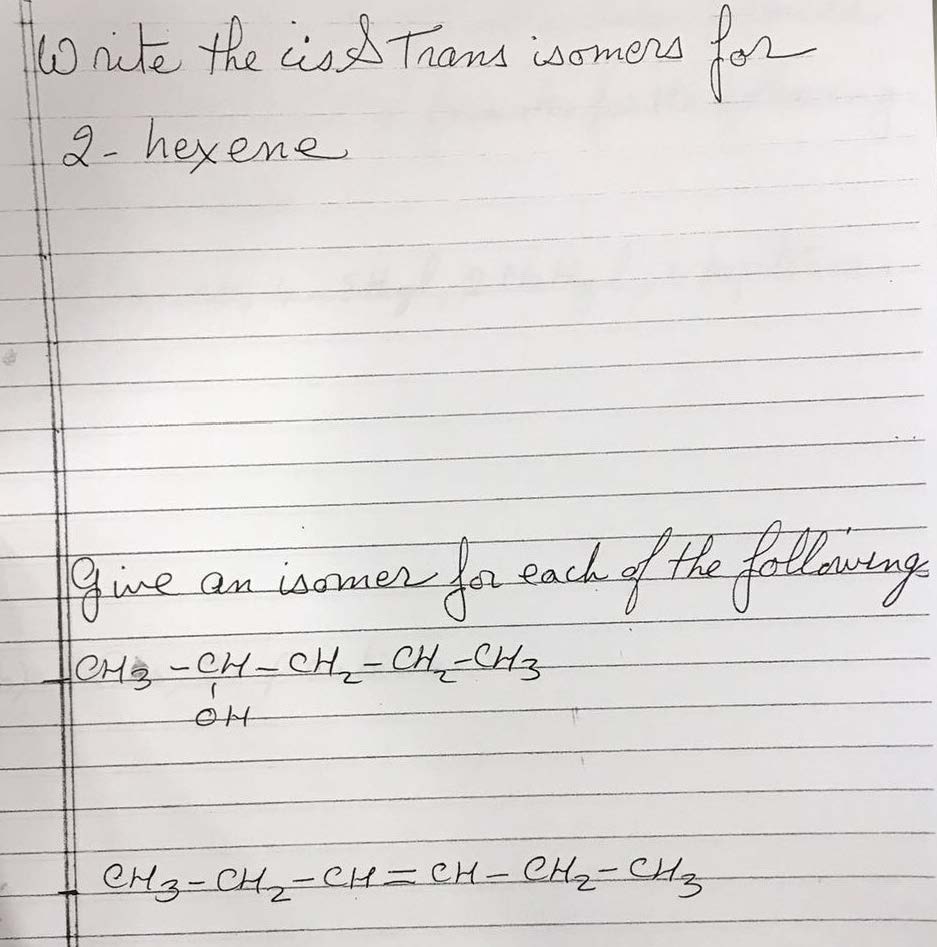 Write the cis & Trans isomers for
2- hexene
Give an isomer for each of the following
CH3 - CH - CH2 - CH2 - CH3
OH
CH3 - CH2 - CH = CH - CH2 - CH3